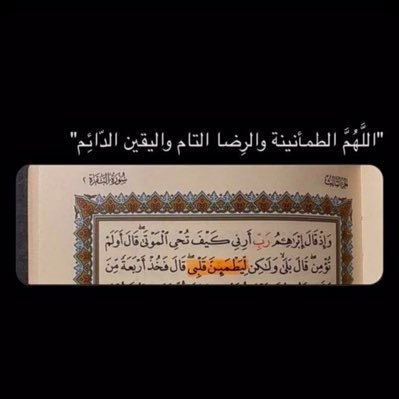 "اللَّهُمَّ الطمأنينة والرِضا التام واليقين الدّائِم"
سُورَةُ البَقَرَة ٢
الجزء الثالث
وَإِذْ قَالَ إِبْرَٰهِـۧمُ رَبِّ أَرِنِى كَيْفَ تُحْىِ ٱلْمَوْتَىٰ ۖ قَالَ أَوَلَمْ
تُؤْمِن ۖ قَالَ بَلَىٰ وَلَـٰكِن لِّيَطْمَئِنَّ قَلْبِى ۖ قَالَ فَخُذْ أَرْبَعَةً مِّنَ